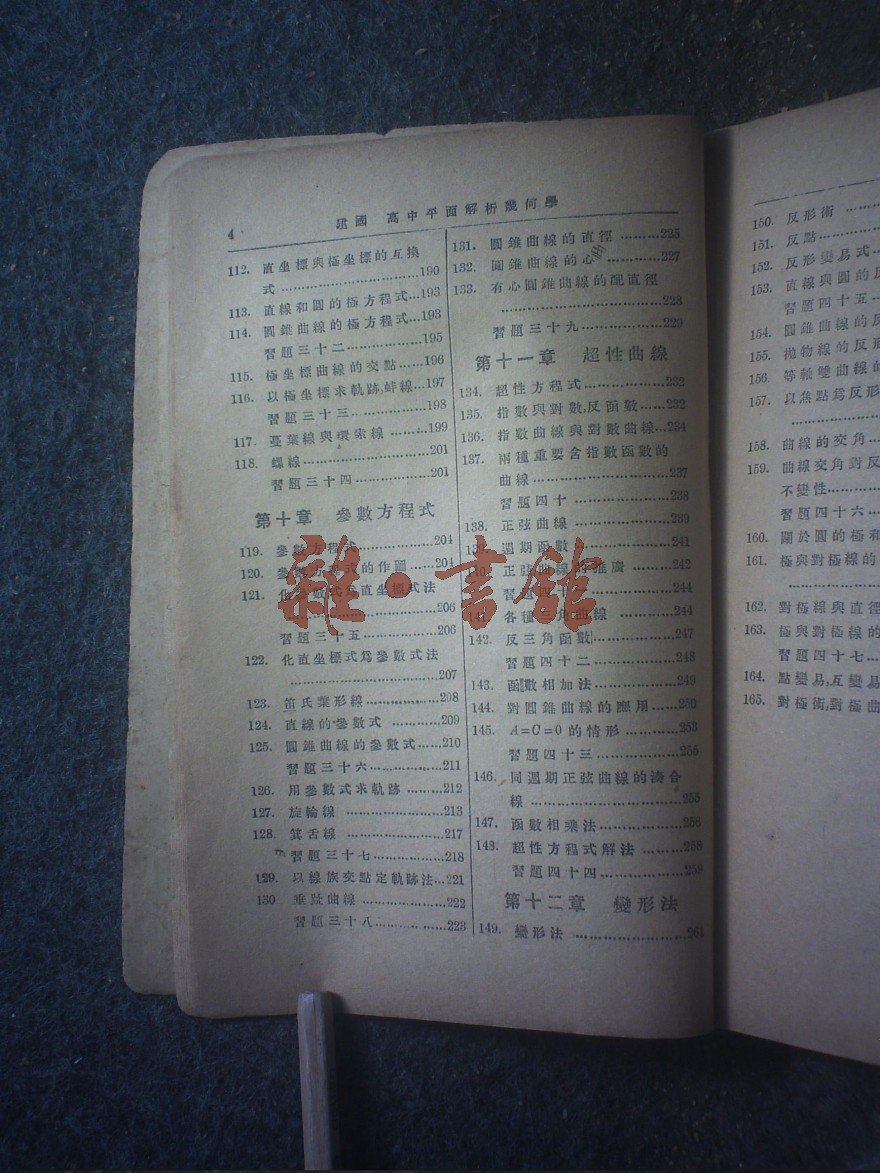 4
建國 高中平面解析幾何學
112. 直坐標與極坐標的互換
式……………………190
113. 直線和圓的極方程式…193
114. 圓錐曲線的極方程式…193
習題三十二…………195
115. 極坐標曲線的交點……196
116. 以極坐標求軌跡,蚌線…197
習題三十三…………198
117. 蔓葉線與環索線 ………199
118. 螺線……………………201
習題三十四…………201
第十章 參數方程式
119. 參數方程式……………204
120. 參數方程式的作圖……204
121. 化參數式爲直坐標式法
……………………206
習題三十五…………206
122. 化直坐標式爲參數式法
……………………207
123. 笛氏葉形線……………208
124. 直線的參數式 ………209
125. 圓錐曲線的參數式……210
習題三十六…………211
126. 用參數式求軌跡………212
127. 旋輪線 ………………213
128. 箕舌線 ………………217
習題三十七…………218
129. 以線族交點定軌跡法…221
130. 垂趾曲線 ……………222
習題三十八…………223
131. 圓錐曲線的直徑………225
132. 圓錐曲線的心…………227
133. 有心圓錐曲線的配直徑
……………………228
習題三十九…………229
第十一章 超性曲線
134. 超性方程式……………232
135. 指數與對數,反函數……232
136. 指數曲線與對數曲線…234
137. 兩種重要含指數函數的
曲線……………………237
習題四十 …………238
138. 正弦曲線 ……………239
139. 週期函數 ……………241
140. 正弦曲線的推廣 ……242
習題四十一…………244
141. 各種三角曲線 ………244
142. 反三角函數……………247
習題四十二…………248
143. 函數相加法……………249
144. 對圓錐曲線的應用……250
145. A=C=0的情形…………253
習題四十三…………255
146. 同週期正弦曲線的湊合
線 ……………………255
147. 函數相乘法……………256
148. 超性方程式解法 ……258
習題四十四…………259
第十二章 變形法
149. 變形法 ………………261
150. 反形術 ……
151. 反點……
152. 反形變易式…
153. 直線與圓的反
習題四十五…
154. 圓錐曲線的反
155. 拋物線的反形
156 等軸雙曲線的
157. 以焦點爲反形
……………
158. 曲線的交角…
159. 曲線交角對反
不變性……
習題四十六…
160. 關於圓的極和
161. 極與對極線的
……………
162. 對極線與直徑
163. 極與對極線的
習題四十七…
164. 點變易,互變易
165. 對極術,對極曲
雜·書館